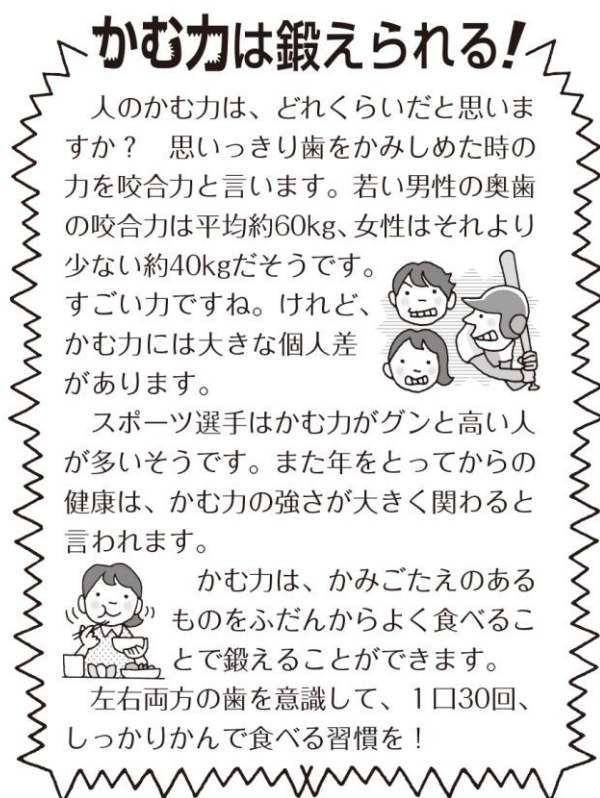 かむ力は鍛えられる!
　人のかむ力は、どれくらいだと思いま
すか？　思いっきり歯をかみしめた時の
力を咬合力と言います。若い男性の奥歯
の咬合力は平均約60kg、女性はそれより
少ない約40kgだそうです。
すごい力ですね。けれど、
かむ力には大きな個人差
があります。
　スポーツ選手はかむ力がグンと高い人
が多いそうです。また年をとってからの
健康は、かむ力の強さが大きく関わると
言われます。
　かむ力は、かみごたえのある
ものをふだんからよく食べるこ
とで鍛えることができます。
　左右両方の歯を意識して、１口30回、
しっかりかんで食べる習慣を！